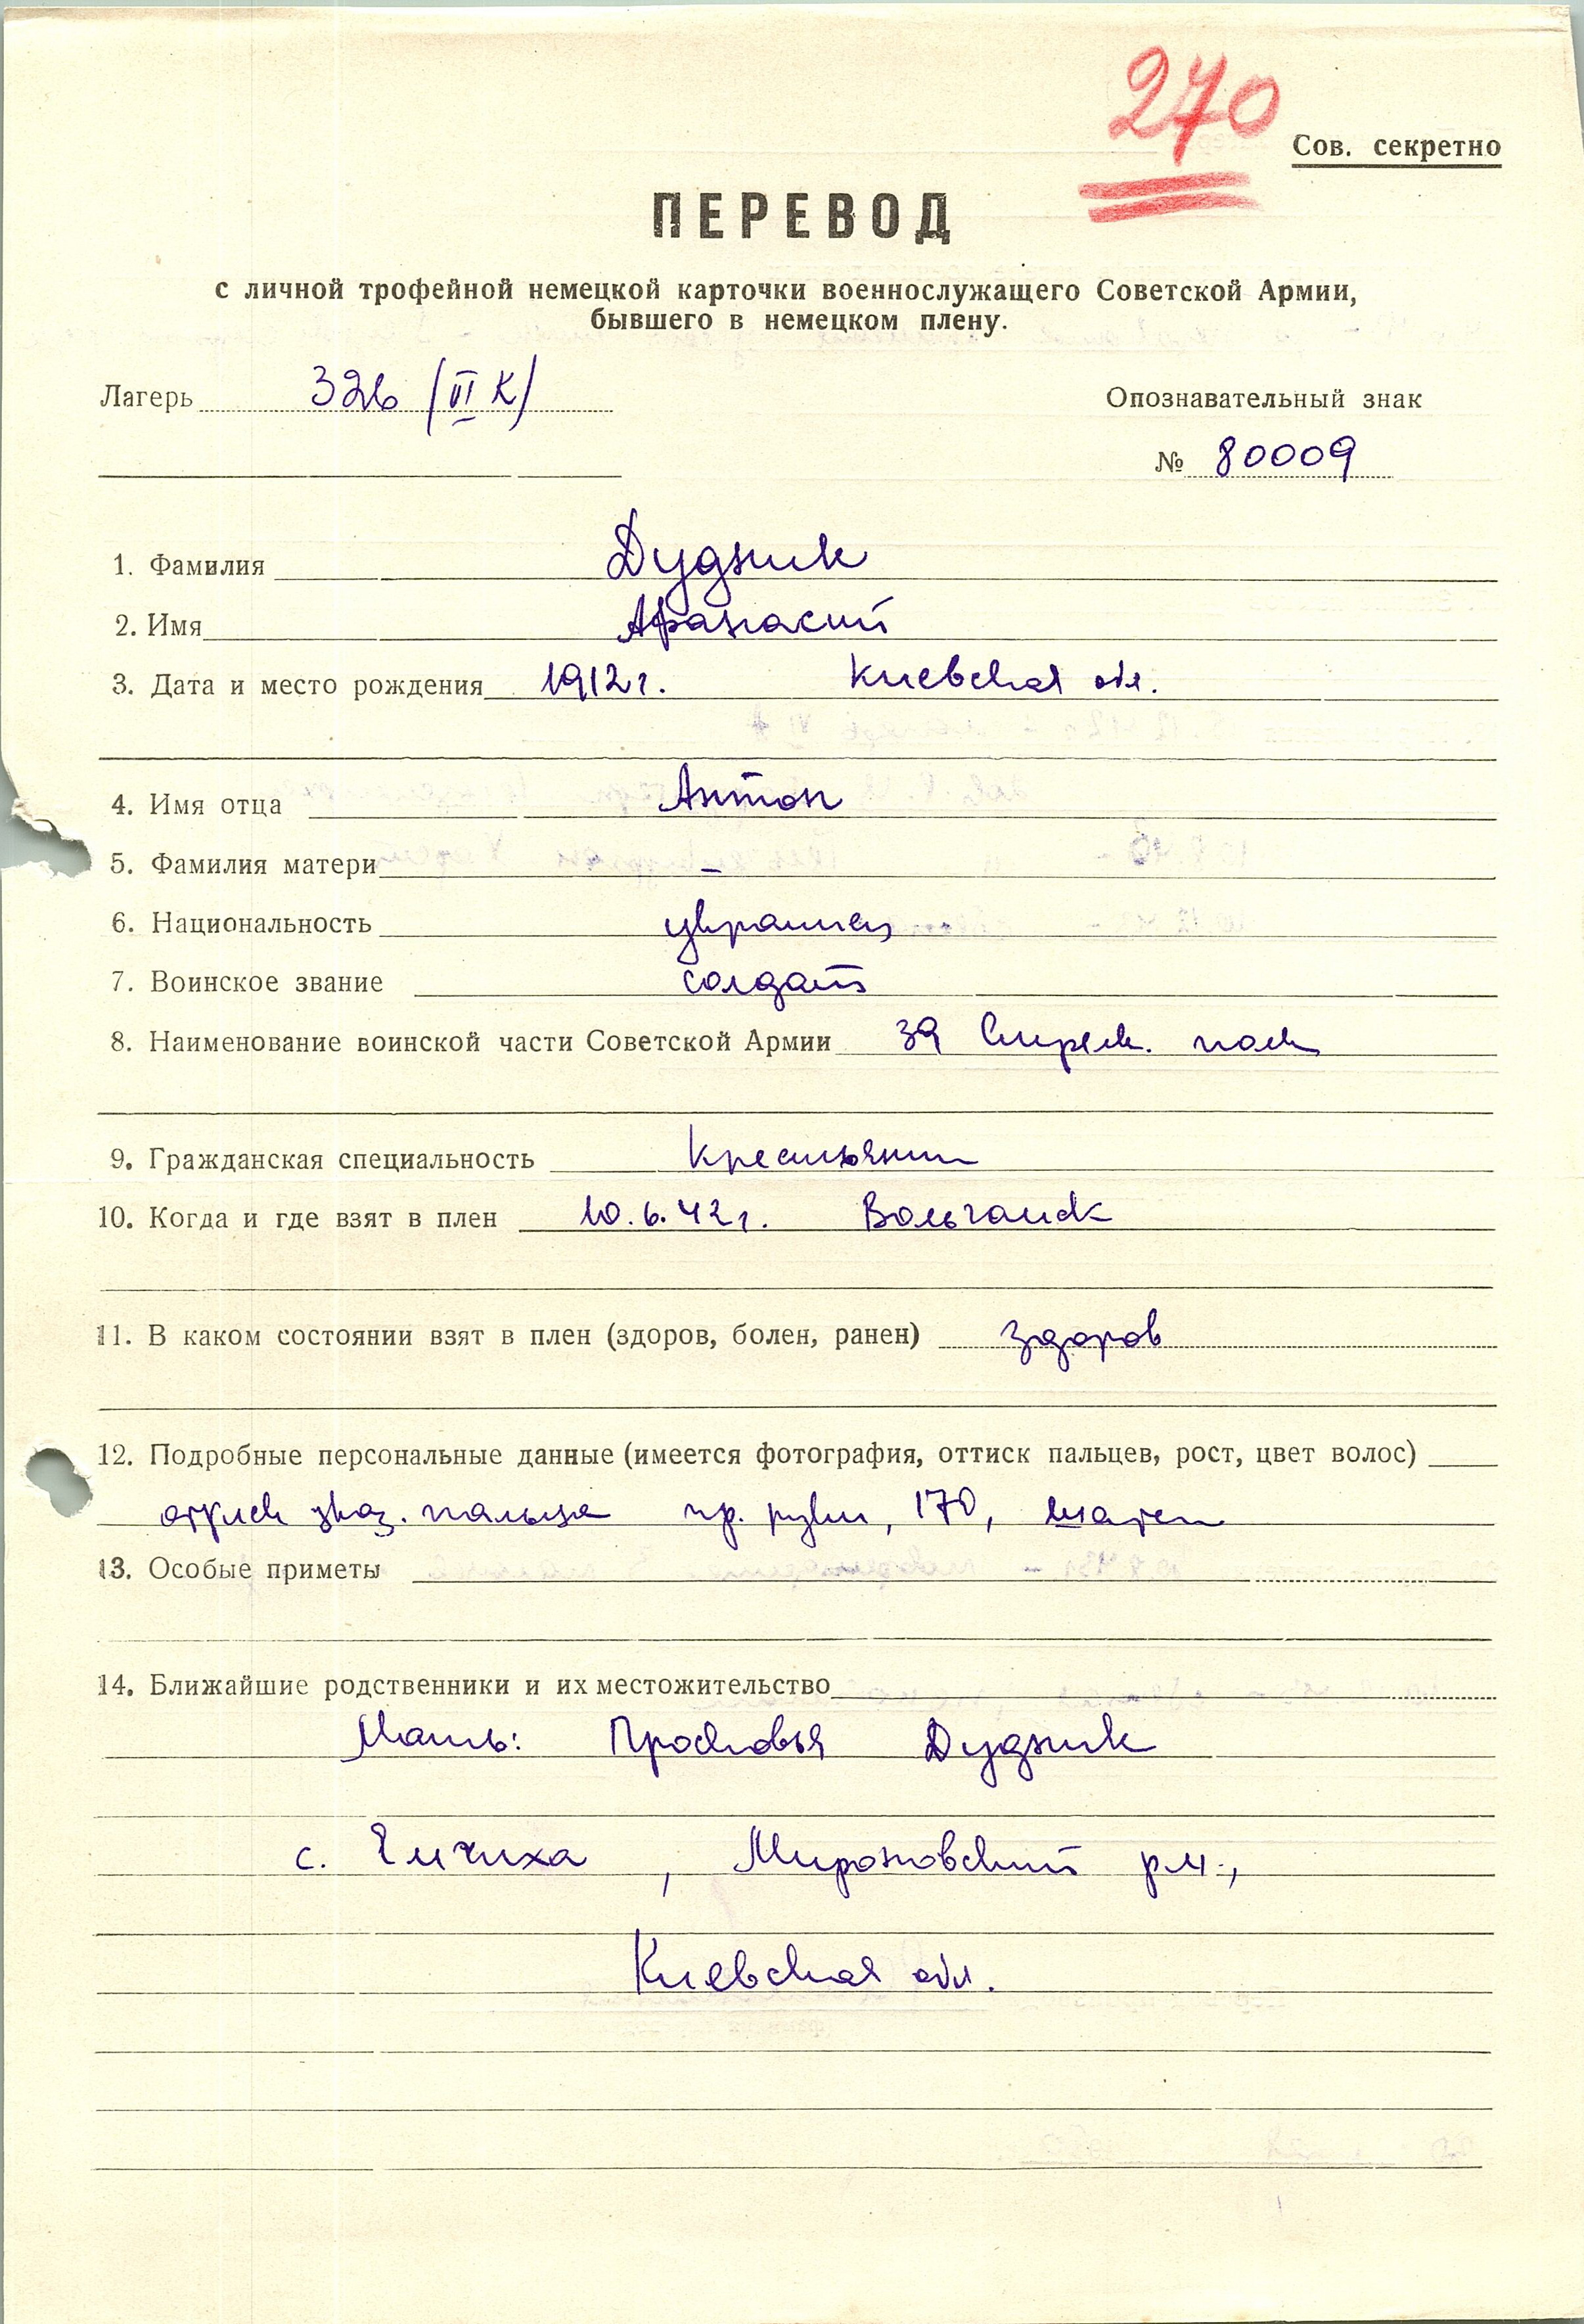 270
Сов. секретно
ПЕРЕВОД
с личной трофейной немецкой карточки военнослужащего Советской Армии,
бывшего в немецком плену.
Лагерь 326 /VI К/ Опознавательный знак
№ 80009
1. Фамилия Дудник
2. Имя Афанасий
3. Дата и место рождения 1912 г. Киевская обл.
4. Имя отца Антон
5. Фамилия матери –
6. Национальность украинец
7. Воинское звание солдат
8. Наименование воинской части Советской Армии 39 Стрелк. полк
9. Гражданская специальность Крестьянин
10. Когда и где взят в плен 10.6.42 г. Вольчанск
11. В каком состоянии взят в плен (здоров, болен, ранен) здоров
12. Подробные персональные данные (имеется фотография, оттиск пальцев, рост, цвет волос)
оттиск указ. пальца пр. руки, 170, шатен
13. Особые приметы
14. Ближайшие родственники и их местожительство
Мать: Просковья Дудник
с. Емчиха, Мироновский р-н.,
Киевская обл.